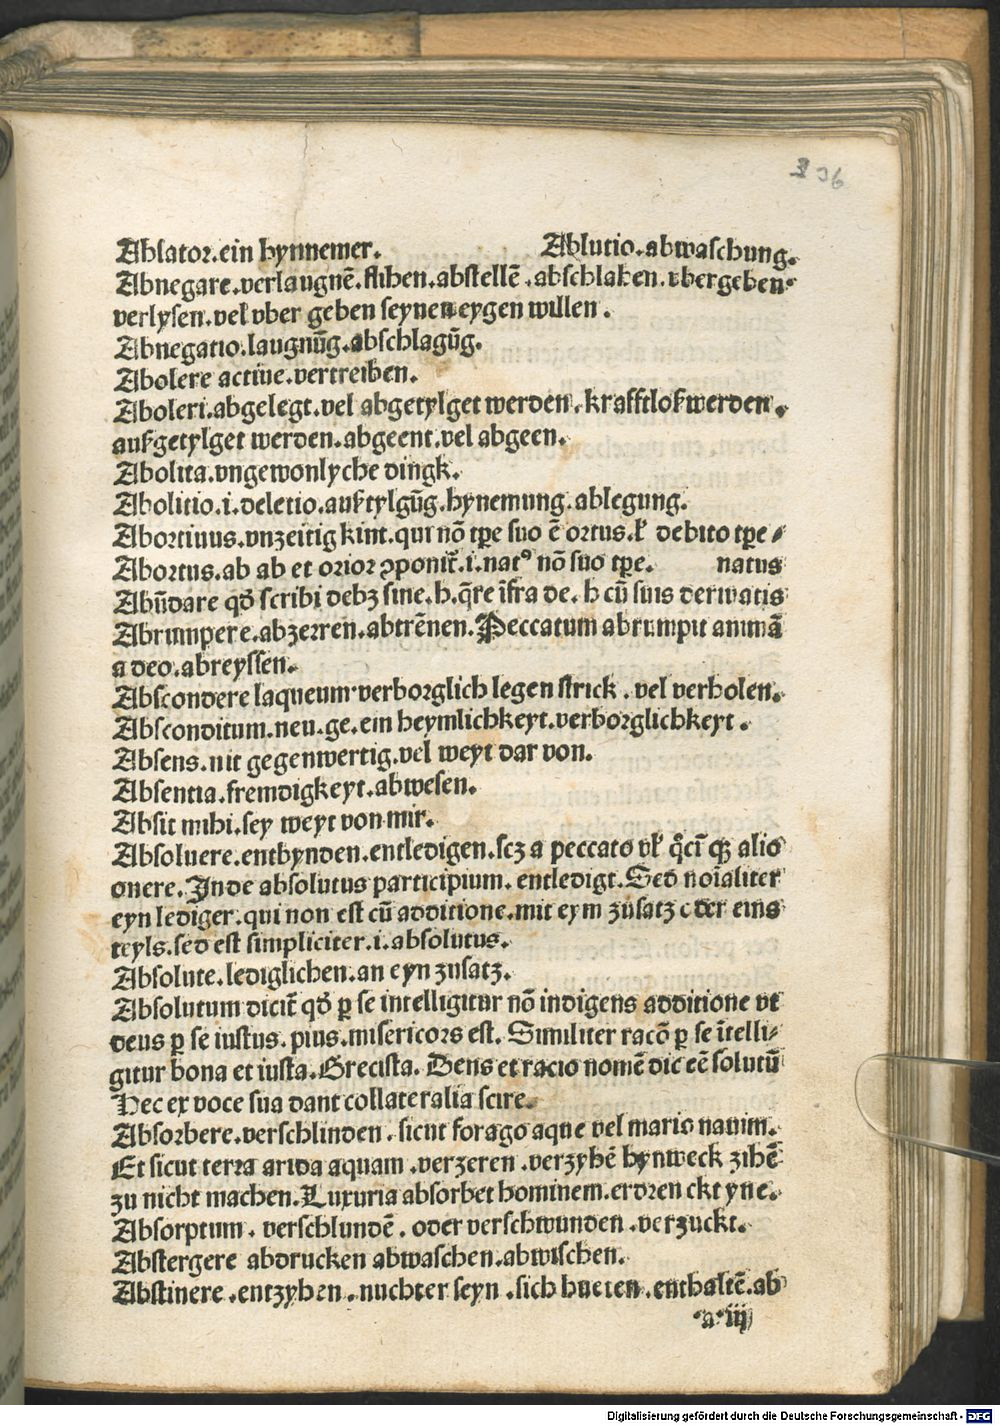 Ablator.ein hynnemer. Ablutio.abwaschung.
Abnegare.verlaugnē.flihen.abstellē.abschlahen.vbergeben.
verlysen.vel vber geben seynen eygen willen.
Abnegatio.laugnūg.abschlagūg.
Abolere actiue.vertreiben.
Aboleri.abgelegt.vel abgetylget werden.krafftloß werden.
außgetylget werden.abgeent.vel abgeen.
Abolita.vngewonlyche dingk.
Abolitio.i.deletio.außtylgūg.hynemung.ablegung.
Abortiuus.vnzeitig kint.qui nō tꝑe suo ē ortus.ł debito tꝑe
Abortus.ab ab et orior ꝓponit̄.i.natꝰ nō suo tꝑe. natus
Abūdare qđ scribi debꝫ sine.h.q̄re īfra de.h cū suis deriuatis
Abrumpere.abzerren.abtrēnen.Peccatum abrumpit animā
a deo.abreyssen.
Abscondere laqueum verborglich legen strick.vel verholen.
Absconditum.neu.ge.ein heymlichkeyt.verborglichkeyt.
Absens.nit gegenwertig.vel weyt dar von.
Absentia.fremdigkeyt.abwesen.
Absit mihi.sey weyt von mir.
Absoluere.entbynden.entledigen.scꝫ a peccato vł q̄cī qꝫ alio
onere.Inde absolutus participium.entledigt.Sed noīaliter
eyn lediger.qui non est cū additione.mit eym zusatz oder eins
teyls.sed est simpliciter.i.absolutus.
Absolute.lediglichen.an eyn zusatz.
Absolutum dicit̄ qđ ꝑ se intelligitur nō indigens additione vt
deus ꝑ se iustus.pius.misericors est.Similiter racō ꝑ se ītelli⸗
gitur bona et iusta.Grecista.Dens et racio nomē dic eē solutū
Hec ex voce sua dant collateralia scire.
Absorbere.verschlinden.sicut forago aque vel maris nauim.
Et sicut terra arida aquam.verzeren.verzyhē hynweck zihē
zu nicht machen.Luxuria absorbet hominem.erdrenckt yne.
Absorptum.verschlundē.oder verschwunden.verzuckt.
Abstergere abdrucken abwaschen.abwischen.
Abstinere.entzyhen.nuchter seyn.sich hueten.enthaltē.ab
a iij
Digitalisierung gefördert durch die Deutsche Forschungsgemeinschaft - DFG